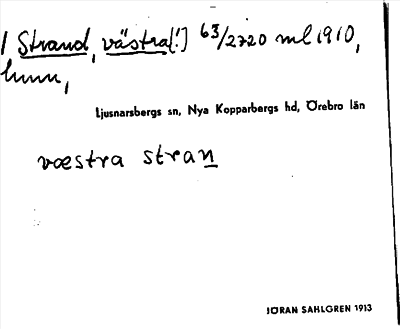 / Strand, västra[!] 63/2720 ml 1910,
hmn,
Ljusnarsbergs sn, Nya Kopparbergs hd, Örebro län
væstra stran
JÖRAN SAHLGREN 1913